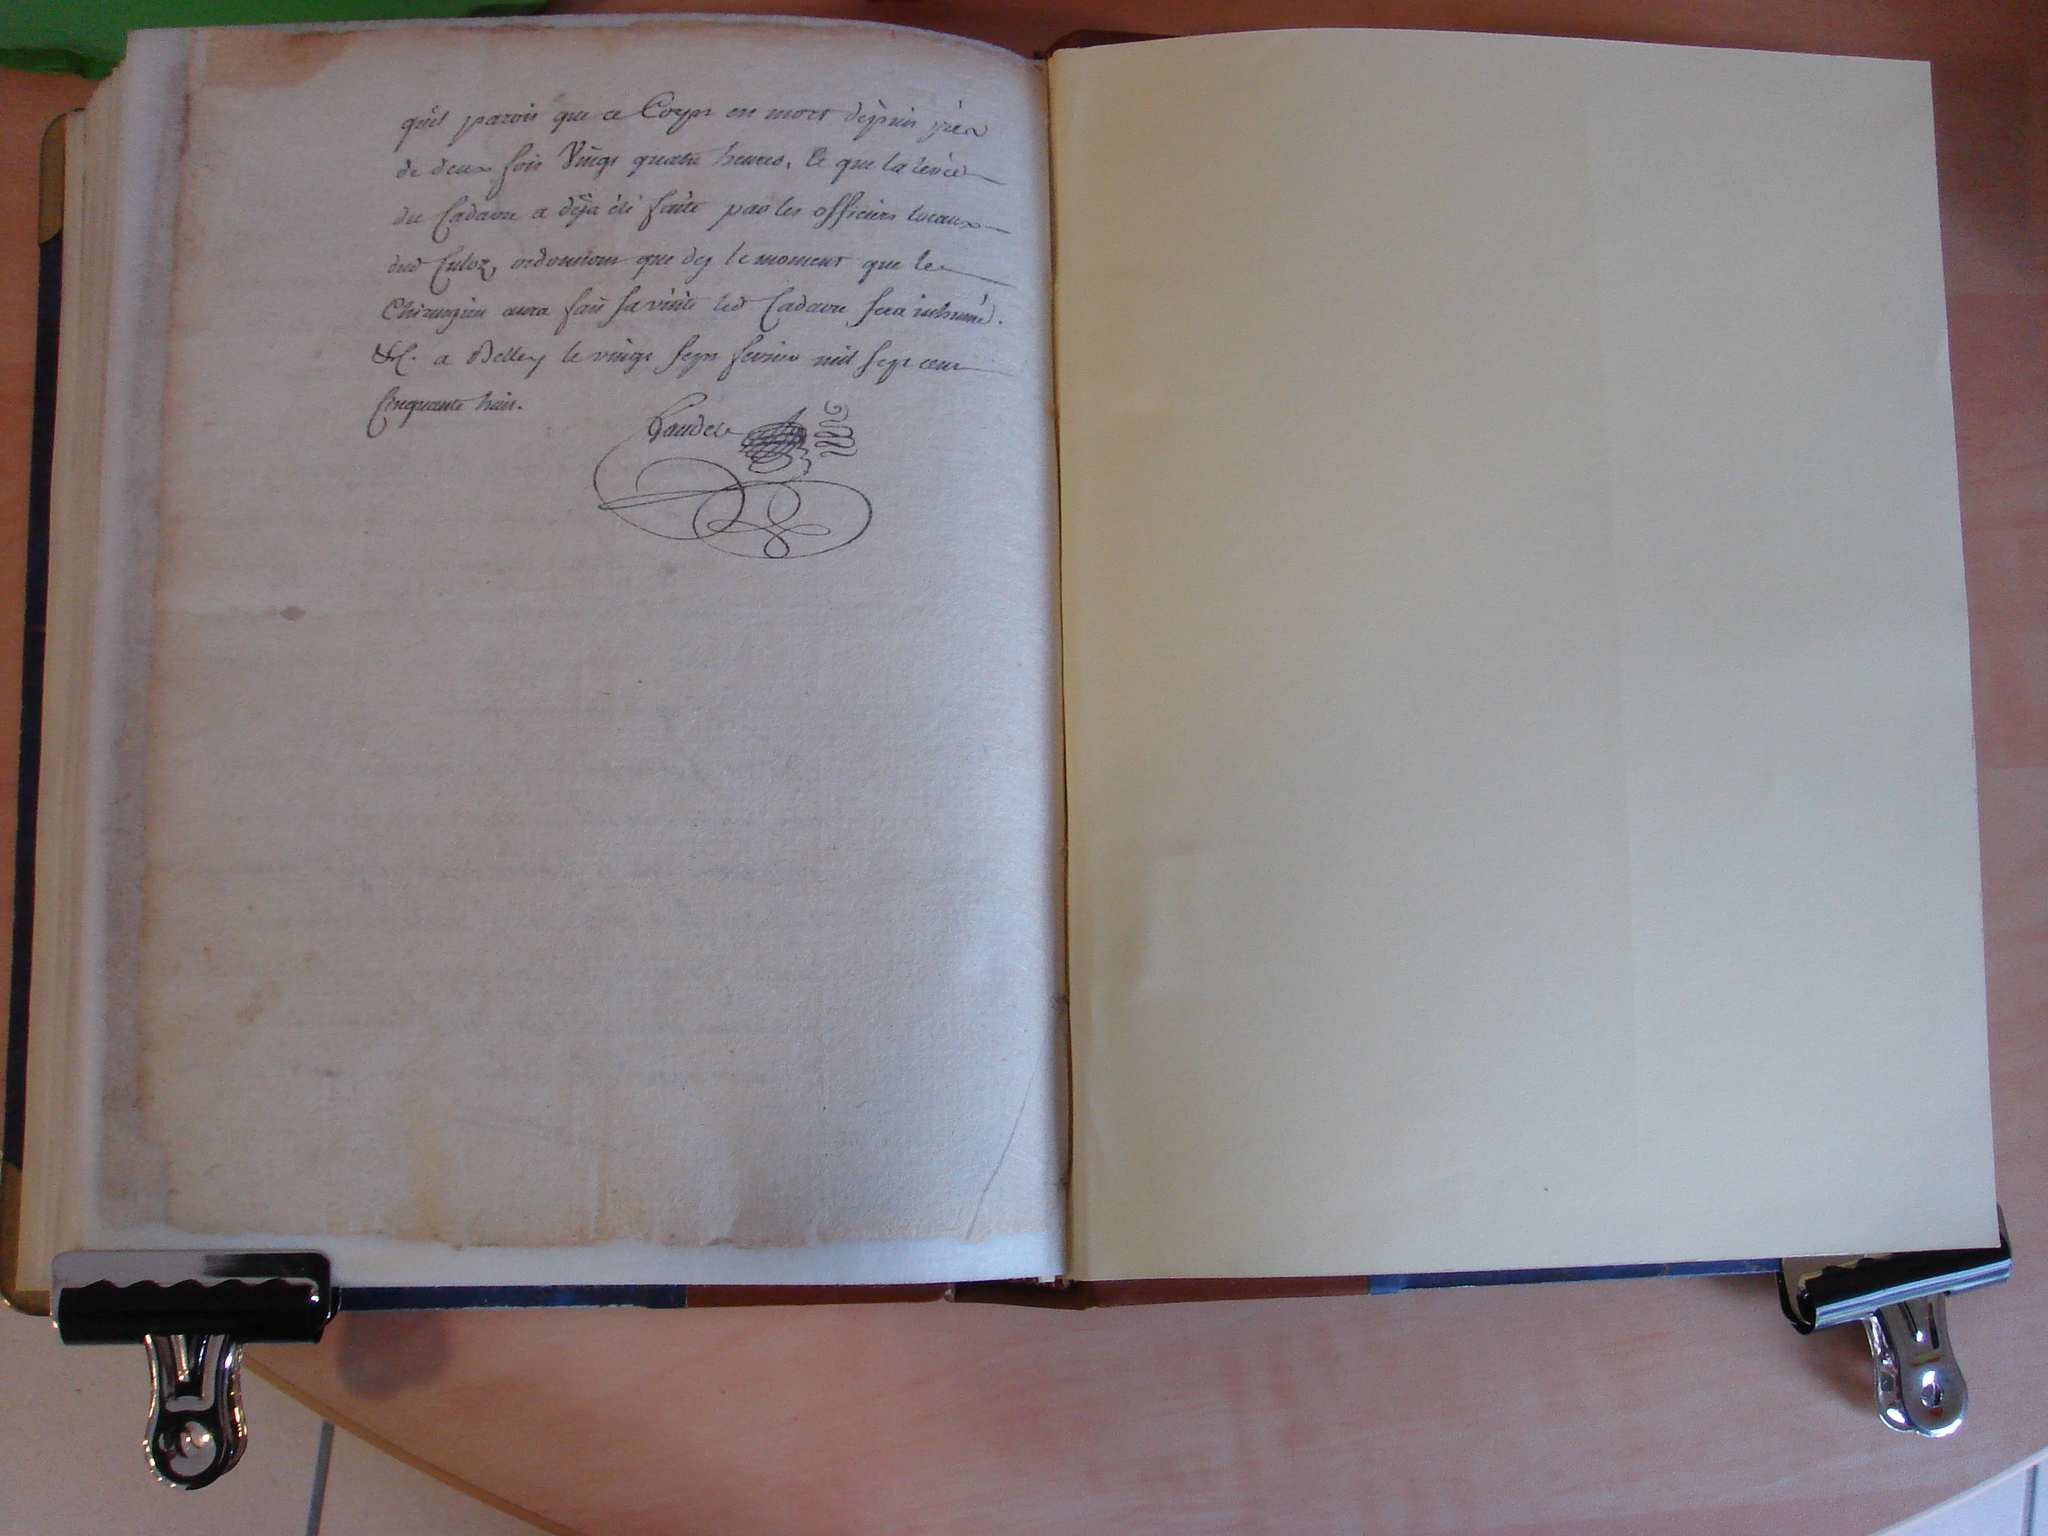 qu'il parois que ce Corps est mort depuis près
de deux fois Vingt quatre heures, Et que la levée
du Cadavre a déja été faite par les officiers locaux
dud Culoz, ordonnons que des le moment que le
Chirurgien aura fait sa visite led Cadavre sera inhumé.
a Belley le vingt sept fevrier mil sept cent
Cinquante huit.
Gaudet